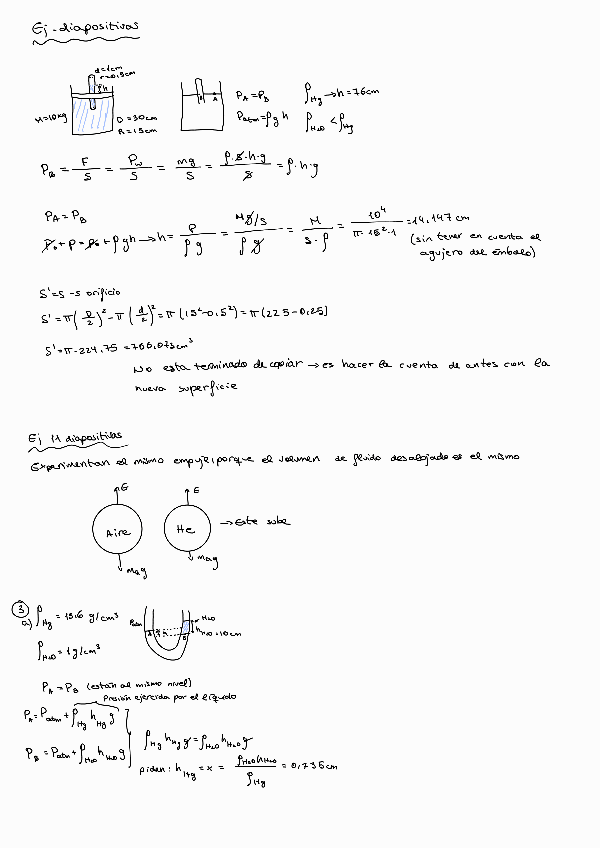 Ej-diapositivas
d=1cm
r=0.5cm
h
M=10kg
D=30cm
R=15cm
B A
P_A = P_B
P_atm = ρgh
ρ_Hg → h=76cm
ρ_H2O < ρ_Hg
P_B = F/S = P_w/S = mg/S = ρ·S·h·g/S = ρ·h·g
P_A = P_B
P_0 + P = P_0 + ρgh → h = P/ρg = Mg/S/ρg = M/S·ρ = 10^4/π·15^2·1 = 14.147 cm
(sin tener en cuenta el
agujero del émbolo)
S'=S-S orificio
S' = π(D/2)^2 - π(d/2)^2 = π(15^2-0.5^2) = π(225-0.25]
S'=π·224.75 = 706.073cm^3
No esta terminado de copiar → es hacer la cuenta de antes con la
nueva superficie
Ej 11 diapositivas
Experimentan el mismo empuje, porque el volumen de fluido desalojado es el mismo
E E
Aire He → Este sube
mag mag
③
a) ρ_Hg = 13.6 g/cm^3
ρ_H2O = 1g/cm^3
Patm
H2O
h_H2O=10cm
P_A = P_B (están al mismo nivel)
Presión ejercida por el líquido
P_A = P_atm + ρ_Hg h_Hg g
P_B = P_atm + ρ_H2O h_H2O g
ρ_Hg h_Hg g = ρ_H2O h_H2O g
piden: h_Hg = x = ρ_H2O h_H2O/ρ_Hg = 0.735cm